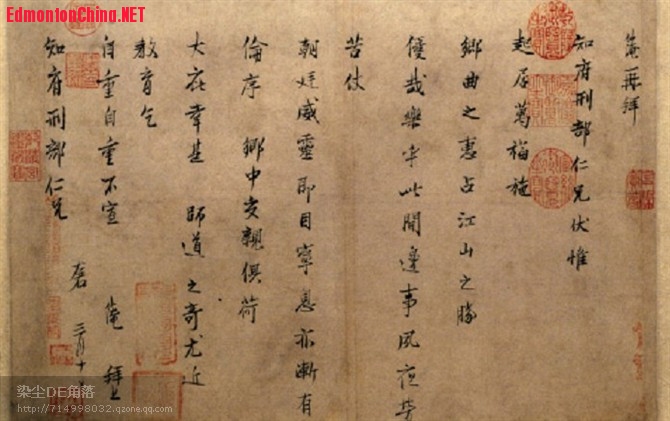 EdmontonChina.NET
淹再拜
知府刑部仁兄伏惟
起居萬福施
鄉曲之惠占江山之勝
優哉樂乎此間邊事夙夜勞
苦仗
朝廷威靈即目寧息亦漸有
倫序 鄉中交親俱荷
大庇幸甚 師道之奇尤近
教育乞
自重自重不宣 淹 拜上
知府刑部仁兄
三月十
染尘DE角落
http://714998032.qzone.qq.com/